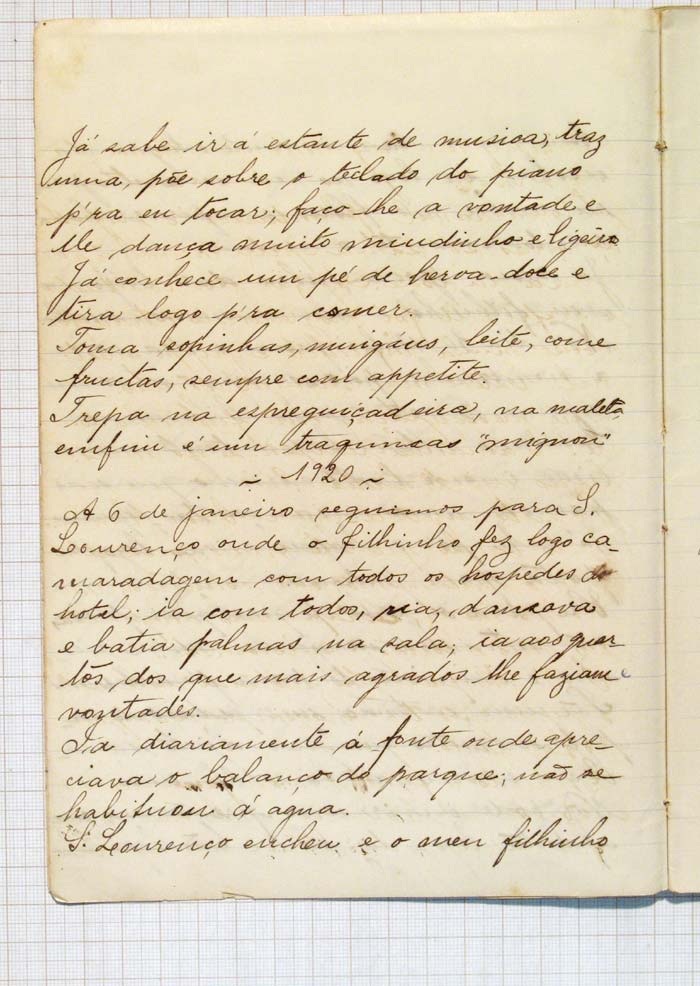 Já sabe ir á estante de musica, traz
uma, põe sobre o teclado do piano
p'ra eu tocar; faço-lhe a vontade e
elle dança muito miudinho e ligeiro
Já conhece um pé de herva-doce e
tira logo p'ra comer.
Toma sopinhas, mingáus, leite, come
fructas, sempre com appetite.
Trepa na espreguiçadeira, na maleta,
emfim é um traquinas "mignon"
~ 1920 ~
A 6 de janeiro seguimos para S.
Lourenço onde o filhinho fez logo ca-
maradagem com todos os hospedes do
hotel; ia com todos, ria, dansava
e batia palmas na sala; ia aos quar-
tos dos que mais agrados lhe faziam e
vontades.
Ia diariamente á fonte onde apre-
ciava o balanço do parque; não se
habituou á agua.
S. Lourenço encheu e o meu filhinho